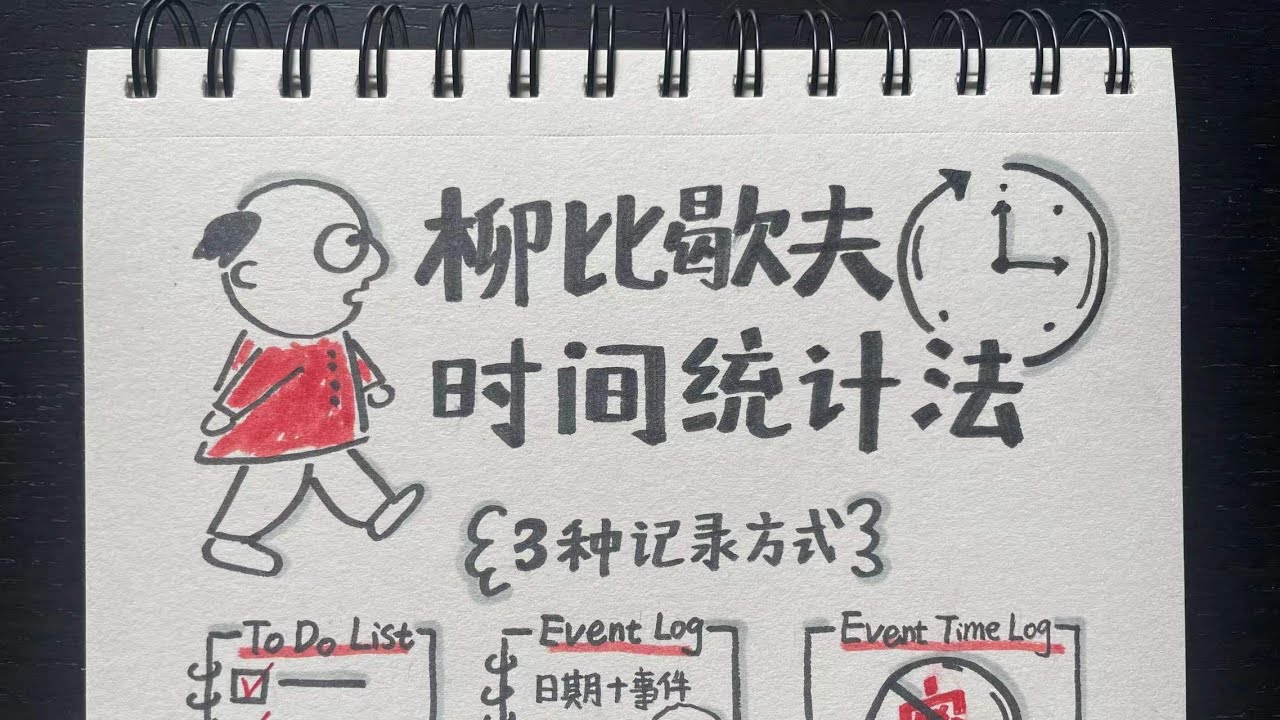 柳比歇夫
时间统计法
{3种记录方式}
To Do List
Event Log
Event Time Log
日期+事件